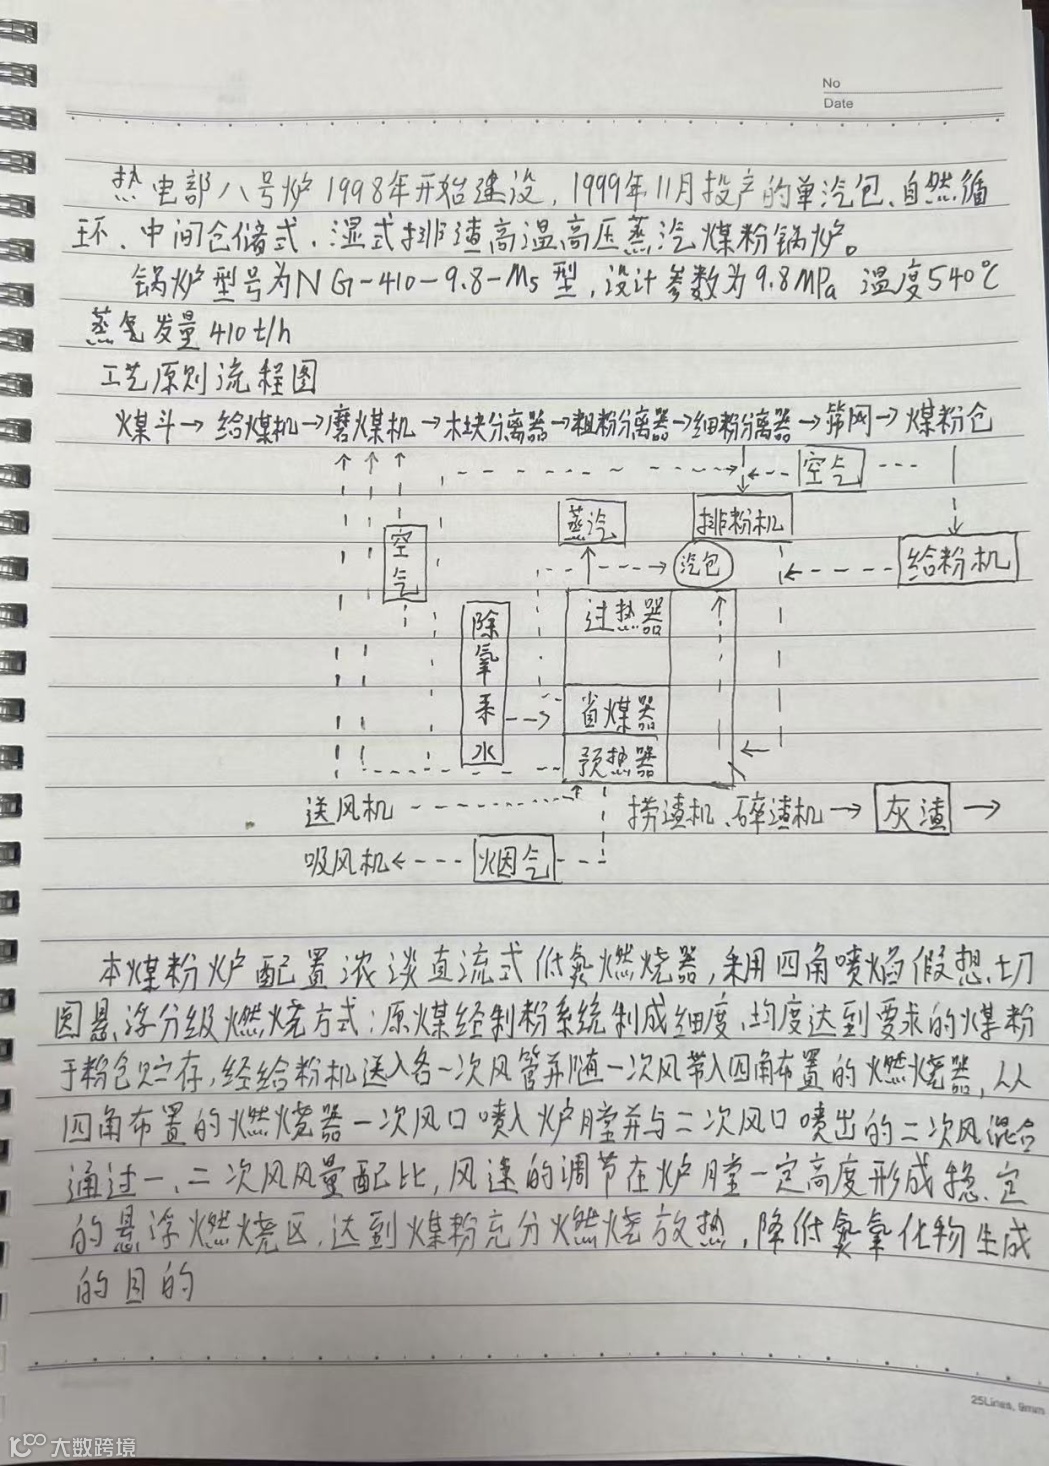 No
Date
热电部八号炉1998年开始建设，1999年11月投产的单汽包、自然循
环、中间仓储式、湿式排渣高温高压蒸汽煤粉锅炉。
锅炉型号为NG-410-9.8-M5型，设计参数为9.8MPa 温度540℃
蒸气发量410t/h
工艺原则流程图
煤斗→给煤机→磨煤机→木块分离器→粗粉分离器→细粉分离器→筛网→煤粉仓
空气
蒸汽 排粉机
空气
汽包 给粉机
除氧系水
过热器
省煤器
预热器
送风机 捞渣机、碎渣机→灰渣→
吸风机← 烟气
本煤粉炉配置浓淡直流式低氮燃烧器，采用四角喷焰假想切
圆悬浮分级燃烧方式：原煤经制粉系统制成细度、均度达到要求的煤粉
于粉仓贮存，经给粉机送入各一次风管并随一次风带入四角布置的燃烧器，从
四角布置的燃烧器一次风口喷入炉膛并与二次风口喷出的二次风混合
通过一、二次风风量配比，风速的调节在炉膛一定高度形成稳定
的悬浮燃烧区，达到煤粉充分燃烧放热，降低氮氧化物生成
的目的
25Lines, 9mm
大数跨境